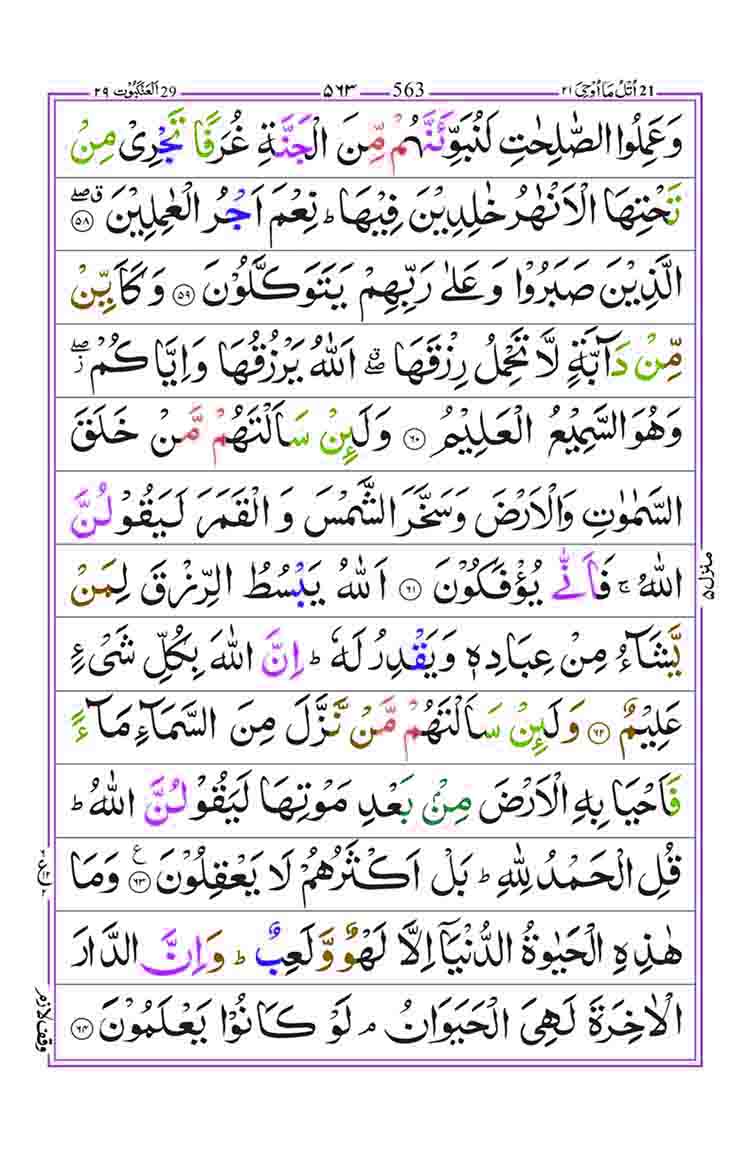 21 اُتْلُ مَاۤاُوْحِیَ ۲۱ 563 ۵۶۳ 29 اَلْعَنْكَبُوْت ۲۹
وَعَمِلُوا الصّٰلِحٰتِ لَنُبَوِّئَنَّهُمْ مِّنَ الْجَنَّةِ غُرَفًا تَجْرِیْ مِنْ
تَحْتِهَا الْاَنْهٰرُ خٰلِدِیْنَ فِیْهَا ؕ نِعْمَ اَجْرُ الْعٰمِلِیْنَ ۵۸ ق صلے
الَّذِیْنَ صَبَرُوْا وَعَلٰی رَبِّهِمْ یَتَوَكَّلُوْنَ ۵۹ وَكَاَیِّنْ
مِّنْ دَآبَّةٍ لَّا تَحْمِلُ رِزْقَهَا ۖق اَللهُ یَرْزُقُهَا وَاِیَّاكُمْ ۖز
وَهُوَ السَّمِیْعُ الْعَلِیْمُ ۶۰ وَلَئِنْ سَاَلْتَهُمْ مَّنْ خَلَقَ
السَّمٰوٰتِ وَالْاَرْضَ وَسَخَّرَ الشَّمْسَ وَ الْقَمَرَ لَیَقُوْلُنَّ
اللهُ ۚ فَاَنّٰی یُؤْفَكُوْنَ ۶۱ اَللهُ یَبْسُطُ الرِّزْقَ لِمَنْ
یَّشَآءُ مِنْ عِبَادِهٖ وَیَقْدِرُ لَهٗ ؕ اِنَّ اللهَ بِكُلِّ شَیْءٍ
عَلِیْمٌ ۶۲ وَلَئِنْ سَاَلْتَهُمْ مَّنْ نَّزَّلَ مِنَ السَّمَآءِ مَآءً
فَاَحْیَا بِهِ الْاَرْضَ مِنْۢ بَعْدِ مَوْتِهَا لَیَقُوْلُنَّ اللهُ ؕ
قُلِ الْحَمْدُ لِلّٰهِ ؕ بَلْ اَكْثَرُهُمْ لَا یَعْقِلُوْنَ ۶۳ ع وَمَا
هٰذِهِ الْحَیٰوةُ الدُّنْیَاۤ اِلَّا لَهْوٌ وَّلَعِبٌ ؕ وَاِنَّ الدَّارَ
الْاٰخِرَةَ لَهِیَ الْحَیَوَانُ ۘ لَوْ كَانُوْا یَعْلَمُوْنَ ۶۴
منزل ۵
وقف لازم